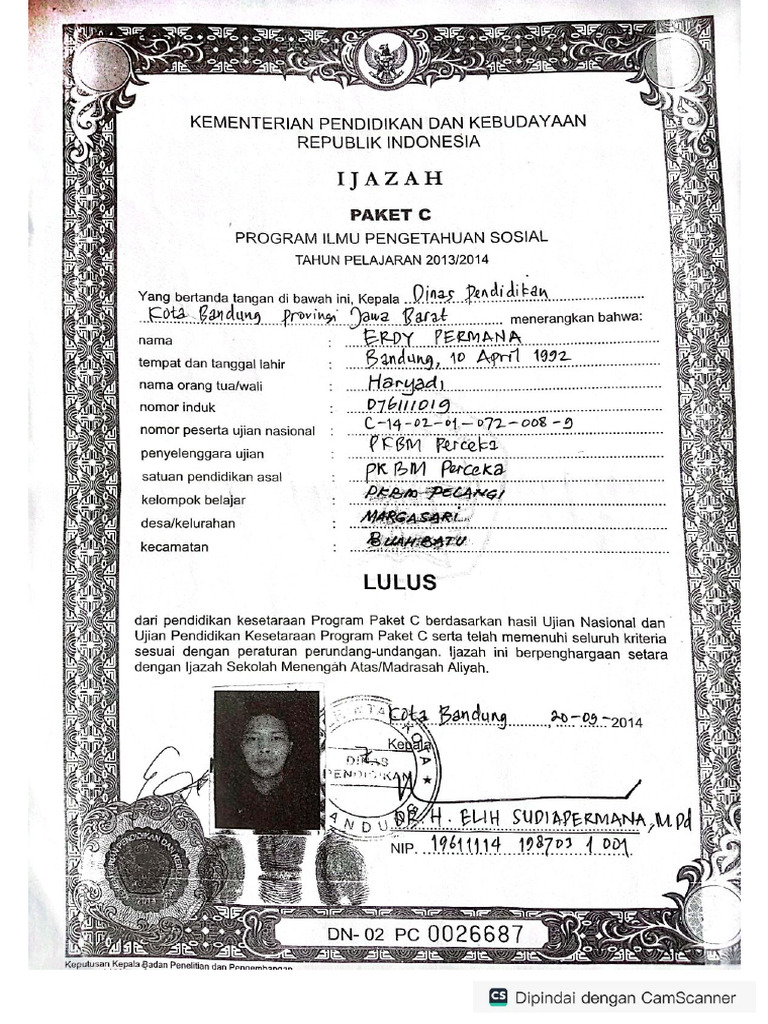 KEMENTERIAN PENDIDIKAN DAN KEBUDAYAAN
REPUBLIK INDONESIA
IJAZAH
PAKET C
PROGRAM ILMU PENGETAHUAN SOSIAL
TAHUN PELAJARAN 2013/2014
Yang bertanda tangan di bawah ini, Kepala Dinas Pendidikan
Kota Bandung Provinsi Jawa Barat menerangkan bahwa:
nama : ERDY PERMANA
tempat dan tanggal lahir : Bandung, 10 April 1992
nama orang tua/wali : Haryadi
nomor induk : 076111019
nomor peserta ujian nasional : C-14-02-01-072-008-9
penyelenggara ujian : PKBM Perceka
satuan pendidikan asal : PKBM Perceka
kelompok belajar : PKBM PELANGI
desa/kelurahan : MARGASARI
kecamatan : BUAHBATU
LULUS
dari pendidikan kesetaraan Program Paket C berdasarkan hasil Ujian Nasional dan
Ujian Pendidikan Kesetaraan Program Paket C serta telah memenuhi seluruh kriteria
sesuai dengan peraturan perundang-undangan. Ijazah ini berpenghargaan setara
dengan Ijazah Sekolah Menengah Atas/Madrasah Aliyah.
Kota Bandung, 20-09-2014
Kepala
DINAS
PENDIDIKAN
DR. H. ELIH SUDIAPERMANA, M.Pd
NIP. 19611114 198703 1 001
DN- 02 PC 0026687
Keputusan Kepala Badan Penelitian dan Pengembangan
CS Dipindai dengan CamScanner